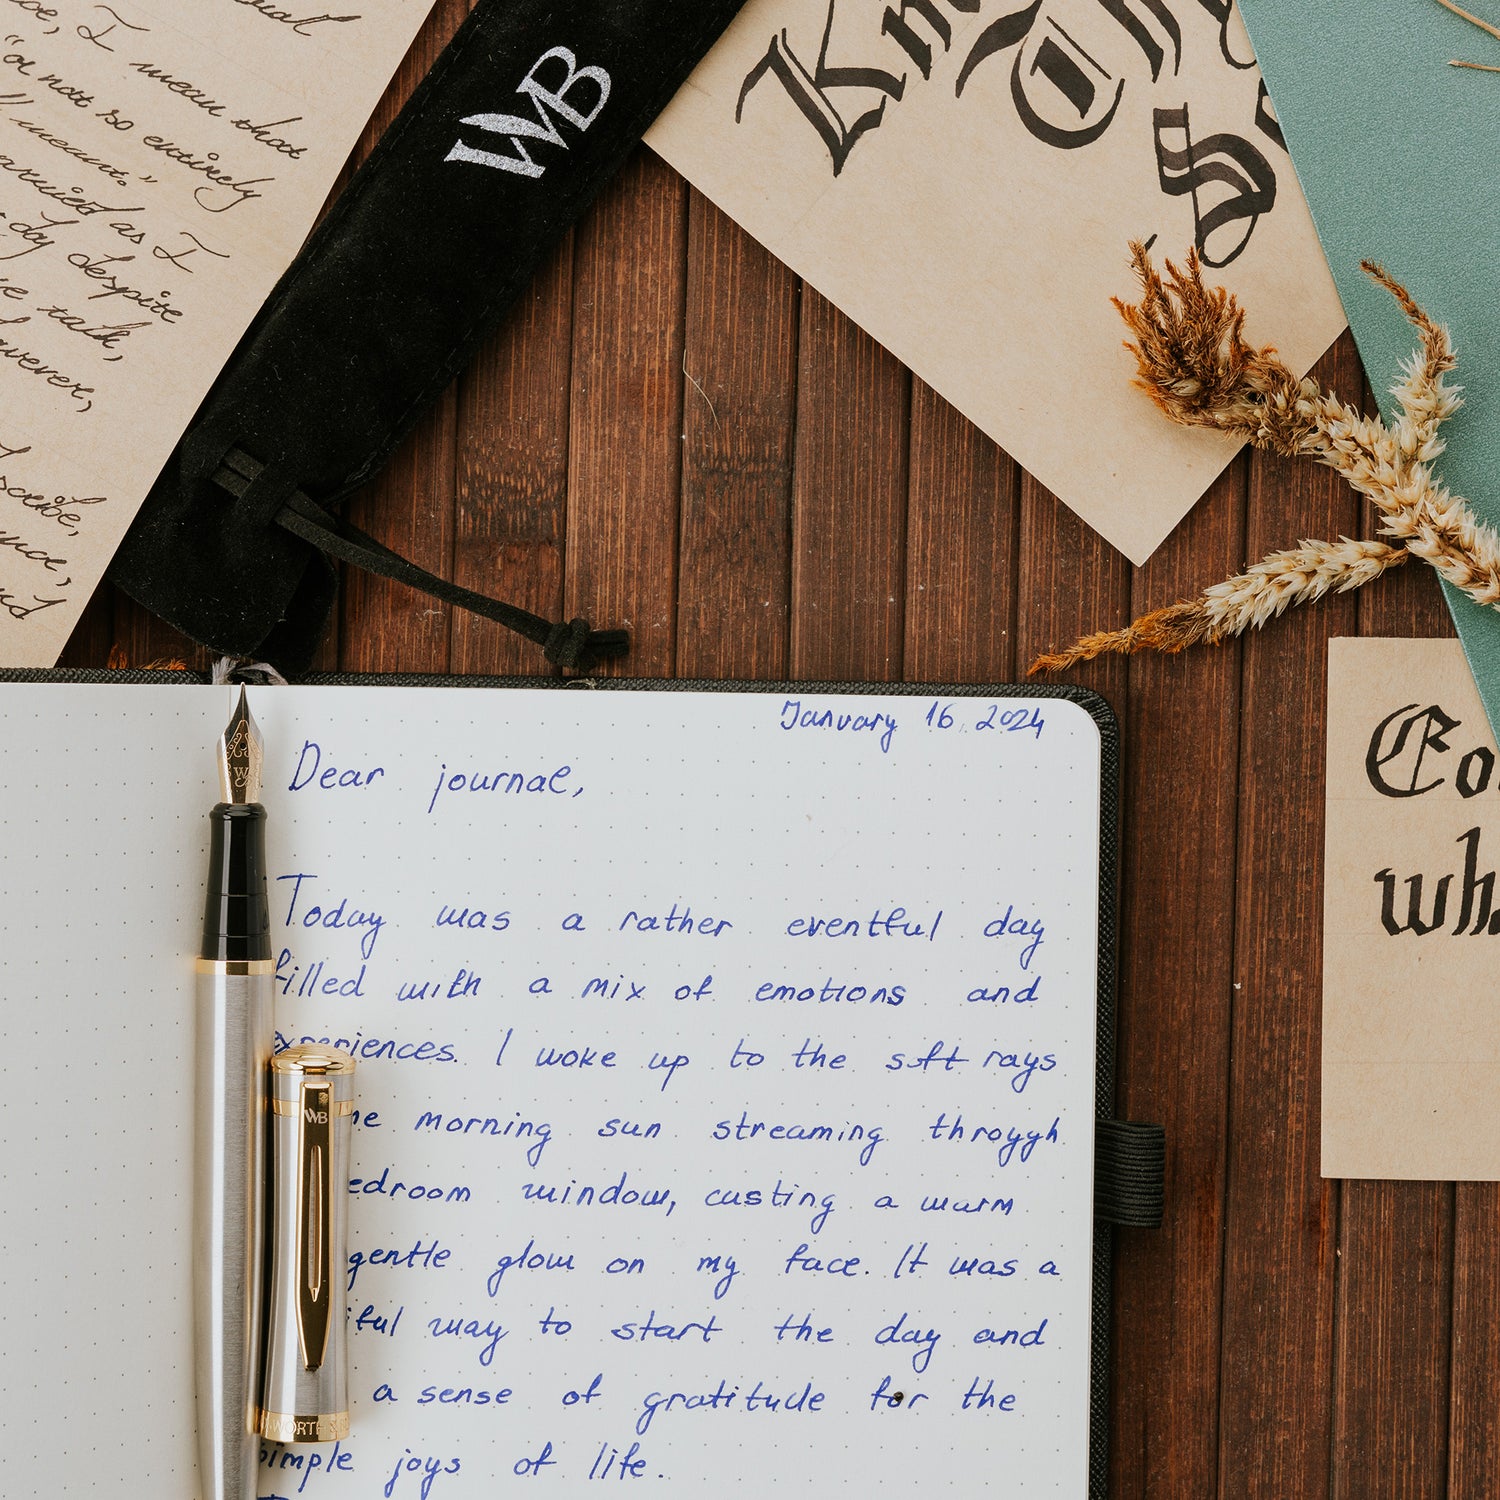 I mean that
"or not so entirely
I meant."
married as I
day despite
we talk,
however,
WB
Kn
Th
S
January 16, 2024
Dear journal,
Today was a rather eventful day
filled with a mix of emotions and
experiences. I woke up to the soft rays
he morning sun streaming throygh
edroom window, casting a warm
gentle glow on my face. It was a
iful way to start the day and
a sense of gratitude for the
simple joys of life.
WB
WORTH &
Co
wh